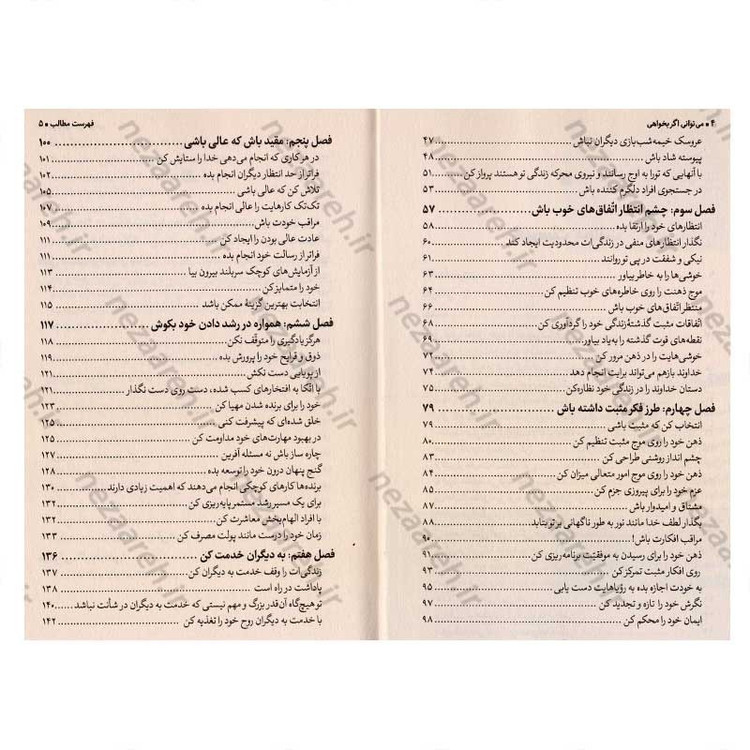 ۴ ● می‌توانی اگر بخواهی
عروسک خیمه‌شب‌بازی دیگران نباش ۴۷
پیوسته شاد باش ۴۸
با آنهایی که تو را به اوج رسانند و نیروی محرکه زندگی تو هستند پرواز کن ۵۱
در جستجوی افراد دلگرم کننده باش ۵۳
فصل سوم: چشم انتظار اتّفاق‌های خوب باش ۵۷
انتظارهای خود را ارتقا بده ۵۸
نگذار انتظارهای منفی در زندگی‌ات محدودیت ایجاد کند ۶۰
نیکی و شفقت در پی تو روانند ۶۱
خوشی‌ها را به خاطر بیاور ۶۳
موج ذهنت را روی خاطره‌های خوب تنظیم کن ۶۴
منتظر اتّفاق‌های خوب باش ۶۶
اتّفاقات مثبت گذشتۀ زندگی خود را گردآوری کن ۶۸
نقطه‌های قوت گذشته را به یاد بیاور ۶۹
خوشی‌هایت را در ذهن مرور کن ۷۲
خداوند بازهم می‌تواند برایت انجام دهد ۷۴
دستان خداوند را در زندگی خود نظاره کن ۷۵
فصل چهارم: طرز فکر مثبت داشته باش ۷۹
انتخاب کن که مثبت باشی ۷۹
ذهن خود را روی موج مثبت تنظیم کن ۸۰
چشم انداز روشنی طراحی کن ۸۳
ذهن خود را روی موج امور متعالی میزان کن ۸۴
عزم خود را برای پیروزی جزم کن ۸۵
مشتاق و امیدوار باش ۸۷
بگذار لطف خدا مانند نور به طور ناگهانی بر تو بتابد ۸۸
مراقب افکارت باش! ۹۰
ذهن خود را برای رسیدن به موفقیّت برنامه‌ریزی کن ۹۱
روی افکار مثبت تمرکز کن ۹۳
به خودت اجازه بده به رؤیاهایت دست یابی ۹۵
نگرش خود را تازه و تجدید کن ۹۷
ایمان خود را محکم کن ۹۸
فهرست مطالب ● ۵
فصل پنجم: مقید باش که عالی باشی ۱۰۰
در هر کاری که انجام می‌دهی خدا را ستایش کن ۱۰۱
فراتر از حد انتظار دیگران انجام بده ۱۰۲
تلاش کن که عالی باشی ۱۰۵
تک‌تک کارهایت را عالی انجام بده ۱۰۷
مراقب خودت باش ۱۰۹
عادت عالی بودن را ایجاد کن ۱۱۱
فراتر از رسالت خود انجام بده ۱۱۱
از آزمایش‌های کوچک سربلند بیرون بیا ۱۱۳
خود را متمایز کن ۱۱۴
انتخابت بهترین گزینۀ ممکن باشد ۱۱۵
فصل ششم: همواره در رشد دادن خود بکوش ۱۱۷
هرگز یادگیری را متوقّف نکن ۱۱۸
ذوق و قریح خود را پرورش بده ۱۱۹
از پویایی دست نکش ۱۲۱
با اتّکا به افتخارهای کسب شده، دست روی دست نگذار ۱۲۱
خود را برای برنده شدن مهیا کن ۱۲۳
خلق شده‌ای که پیشرفت کنی ۱۲۵
در بهبود مهارت‌های خود مداومت کن ۱۲۵
چاره ساز باش نه مسئله آفرین ۱۲۷
گنج پنهان درون خود را توسعه بده ۱۲۸
برنده‌ها کارهای کوچکی انجام می‌دهند که اهمیت زیادی دارند ۱۳۰
برای یک مسیر رشد مستمر پایه‌ریزی کن ۱۳۲
با افراد الهام‌بخش معاشرت کن ۱۳۲
زمان خود را درست مانند پولت مصرف کن ۱۳۳
فصل هفتم: به دیگران خدمت کن ۱۳۶
زندگی‌ات را وقف خدمت به دیگران کن ۱۳۷
پاداشت در راه است ۱۳۸
تو هیچ‌گاه آن‌قدر بزرگ و مهم نیستی که خدمت به دیگران در شأنت نباشد ۱۴۰
با خدمت به دیگران روح خود را تغذیه کن ۱۴۲
nezaareh.ir